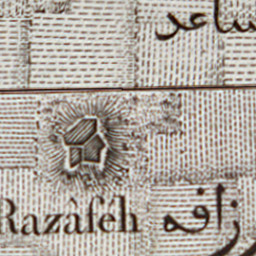 ساعد
Razâféh رزافه